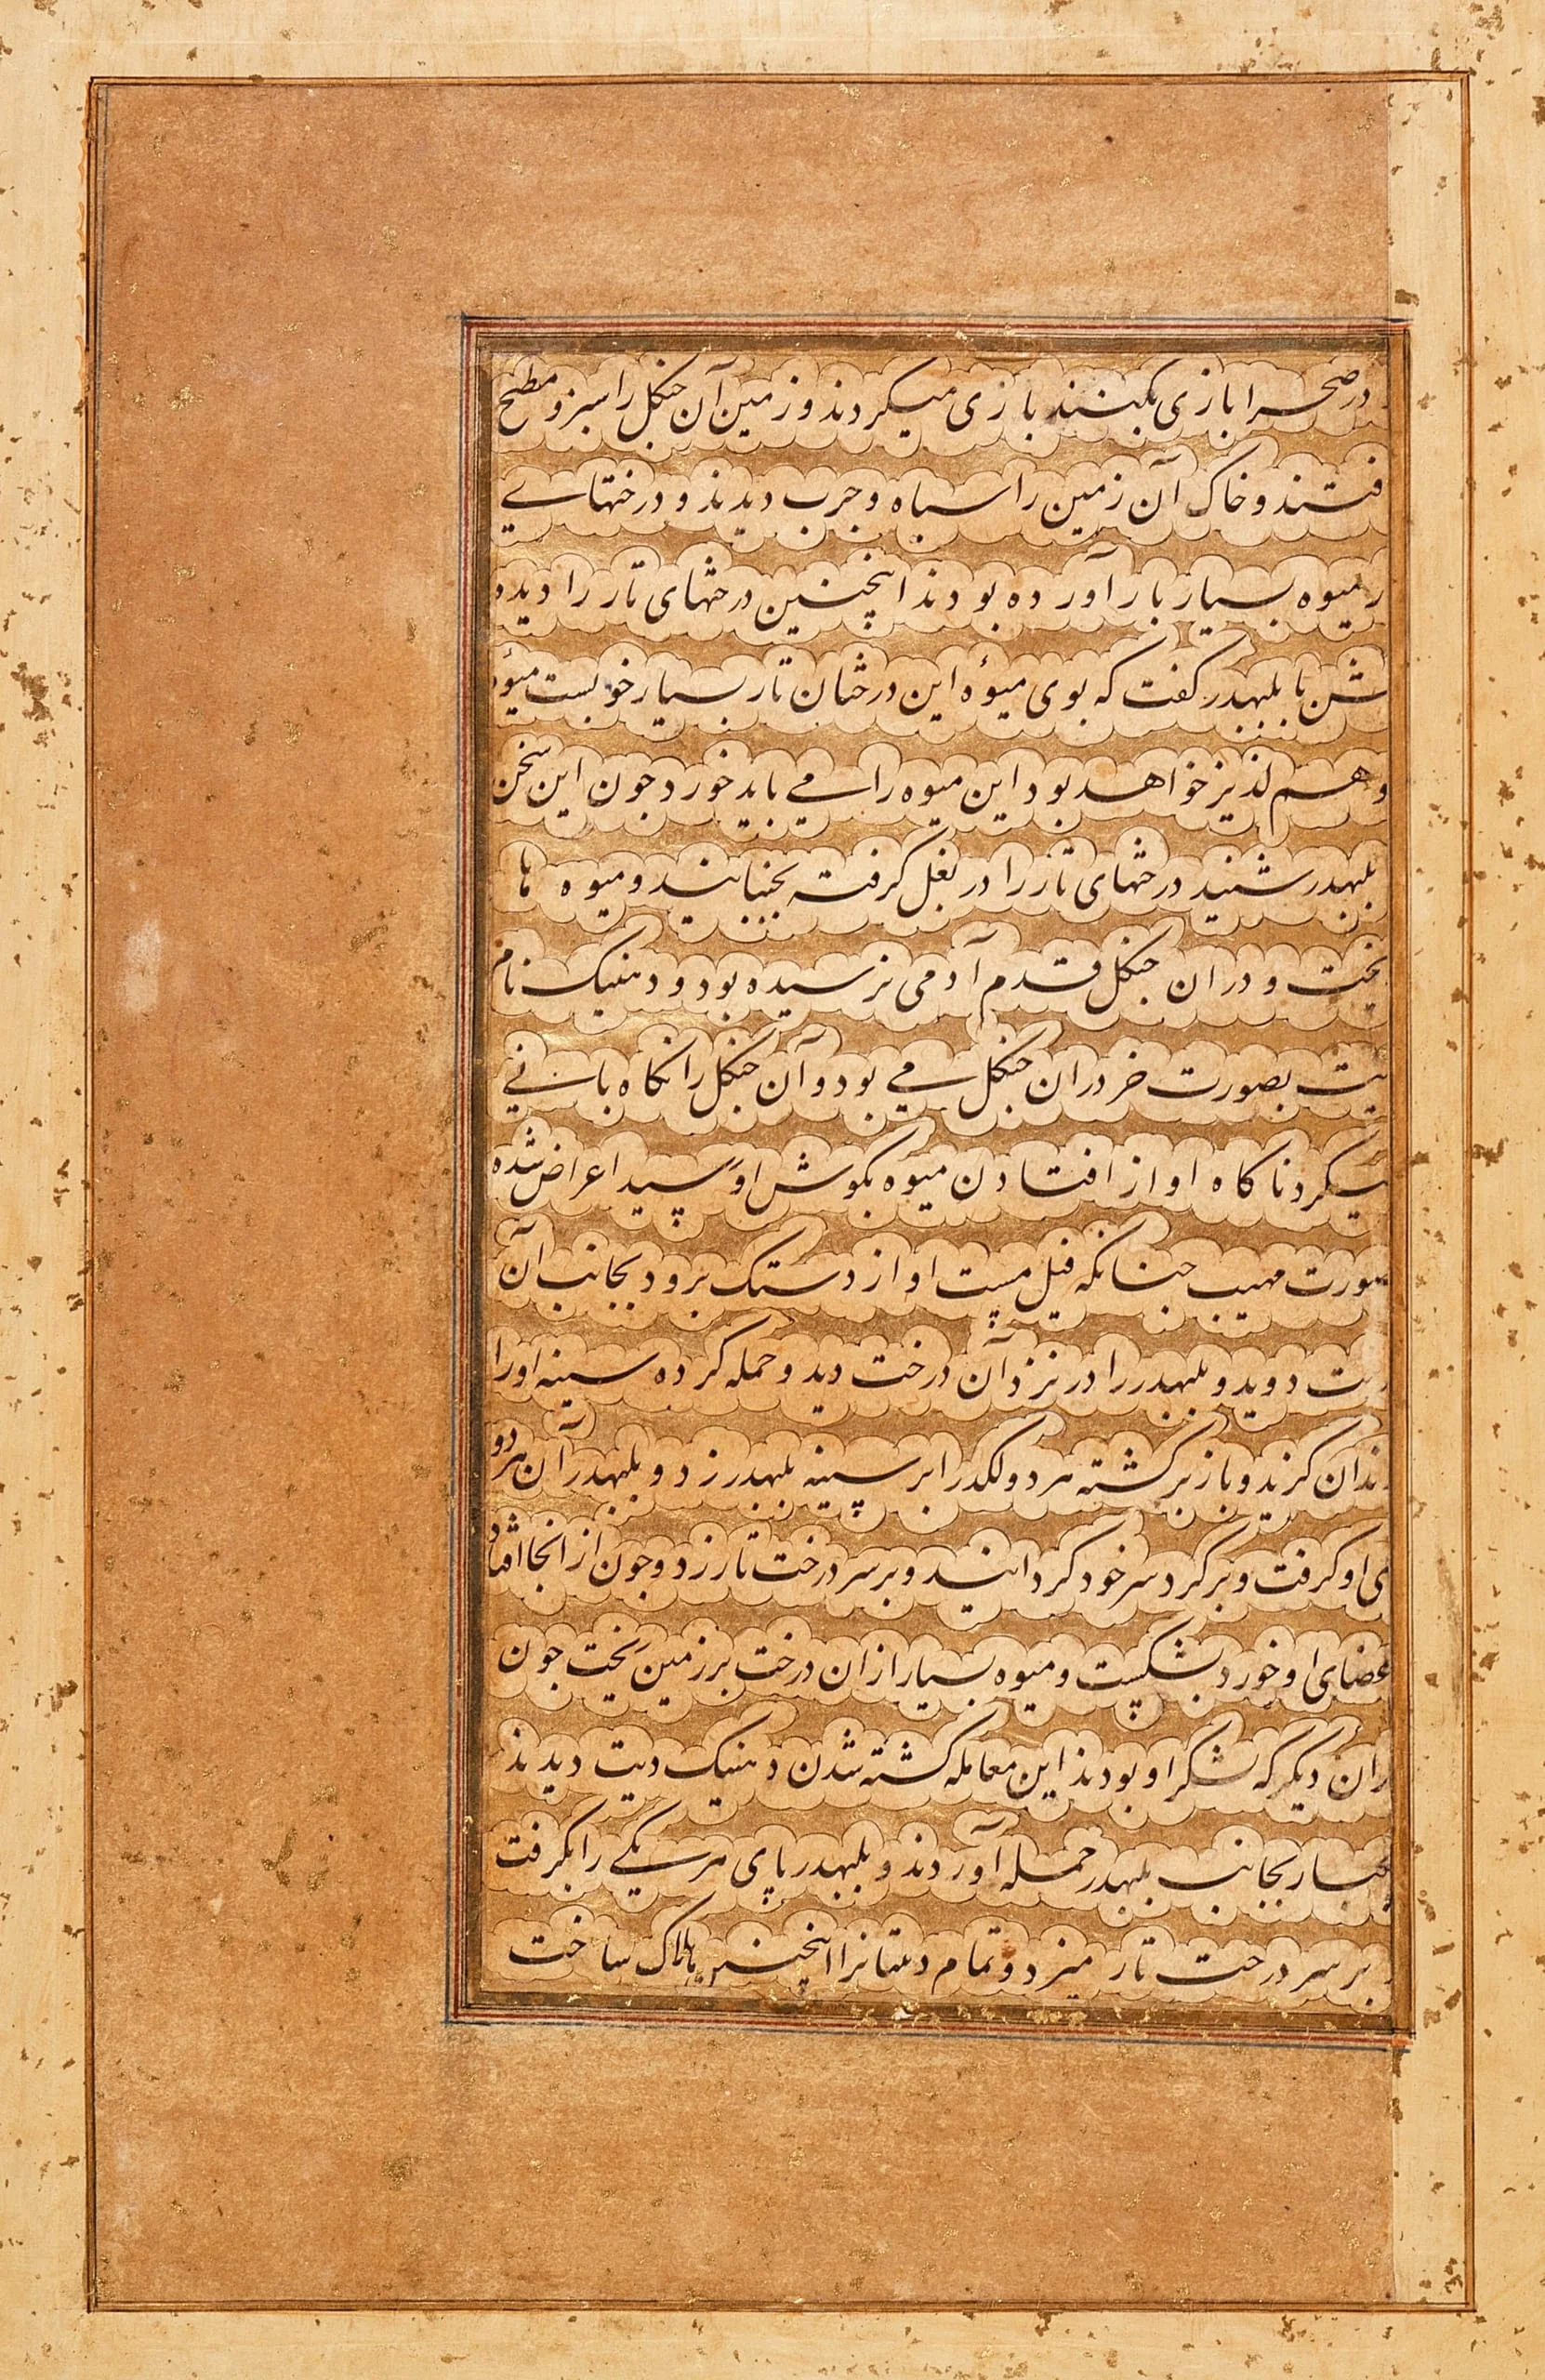 در صحرا بازی بکنند بازی میکردند و زمین آن جنکل را سبز و مطیح
فتند و خاک آن زمین را سیاه و جرب دیدند و درختهایے
ر میوه بسیار بار آورده بودند اینچنین درختهای تار را دیدند
شن با بلبهدر کفت که بوی میوهٔ این درختان تار بسیار خوبست میوهٔ
و هم لذیذ خواهد بود این میوه را مے باید خورد جون این سخن
بلبهدر شنید درختهای تار را در بغل کرفته بجنبانید و میوه ها
یخت و دران جنکل قدم آدمی نرسیده بود و دهنیک نام
یت بصورت خر دران جنکل مے بود و آن جنکل را نکاه بانے
میکرد ناکاه اواز افتادن میوه بکوش او رسید اعراض شده
صورت مهیب جنانکه فیل مست اواز دستک برود بجانب آن
رخت دوید و بلبهدر را در نزد آن درخت دید و حمله کرده سینه او را
ندان کزند و باز برکشته هر دو لکد را بر سینه بلبهدر زد و بلبهدر آن هر دو
ی او کرفت و بر کرد سر خود کردانید و بر سر درخت تار زد و جون از انجا افتاد
عضای او خورد بشکست و میوه بسیار ازان درخت بر زمین ریخت جون
ران دیکر که لشکر او بودند این معامله کشته شدن دهنیک دیت دیدند
یکبار بجانب بلبهدر حمله آوردند و بلبهدر پای هر یکے را بکرفت
بر سر درخت تار میزد و تمام دیتانرا اینچنین هلاک ساخت